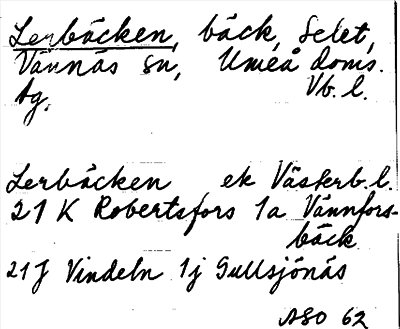 Lerbäcken, bäck, Selet,
Vännäs sn, Umeå doms.
tg, Vb. l.
Lerbäcken ek Västerb. l.
21 K Robertsfors 1a Vännfors-
bäck
21 J Vindeln 1j Gullsjönäs
ASO 62